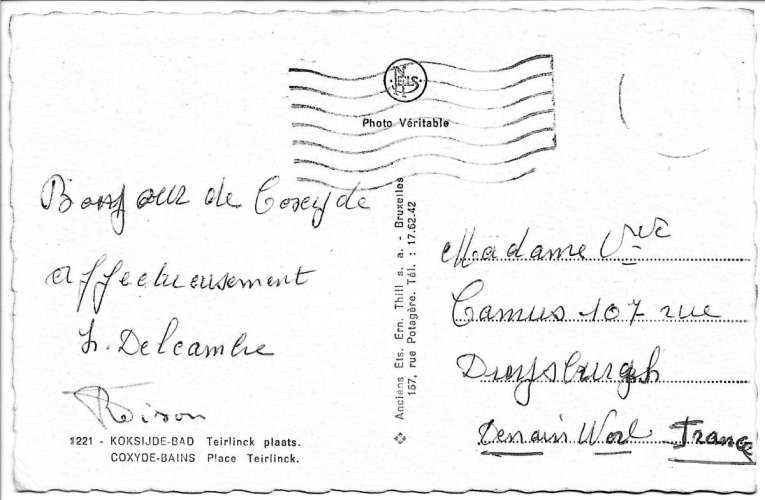 NELS
Photo Véritable
Bonjour de Coxyde
affectueusement
h. Delcambre
1221 - KOKSIJDE-BAD Teirlinck plaats.
COXYDE-BAINS Place Teirlinck.
Anciens Éts. Ern. Thill s. a. - Bruxelles
157, rue Potagère. Tél. : 17.62.42
Madame Vve
Camus 107 rue
Duysburgh
Denain Nord France